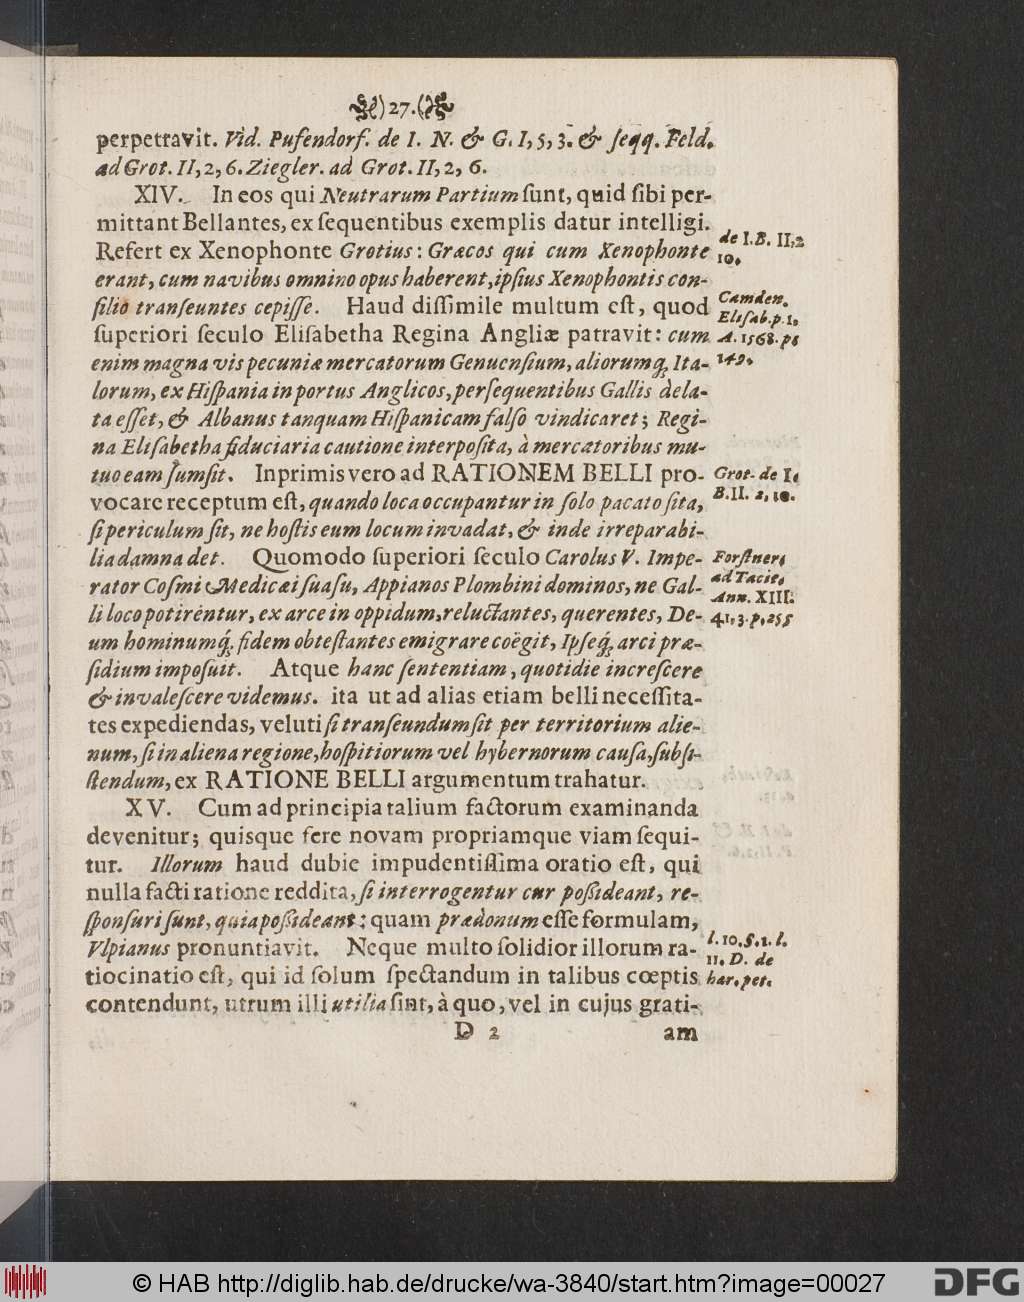 )27.(
perpetravit. Vid. Pufendorf. de I. N. & G. I, 5, 3. & ſeqq. Feld.
ad Grot. II, 2, 6. Ziegler. ad Grot. II, 2, 6.
XIV. In eos qui Neutrarum Partium ſunt, quid ſibi per-
mittant Bellantes, ex ſequentibus exemplis datur intelligi.
Refert ex Xenophonte Grotius: Græcos qui cum Xenophonte
erant, cum navibus omnino opus haberent, ipſius Xenophontis con-
ſilio tranſeuntes cepiſſe. Haud diſſimile multum eſt, quod
ſuperiori ſeculo Eliſabetha Regina Angliæ patravit: cum
enim magna vis pecuniæ mercatorum Genuenſium, aliorumq́; Ita-
lorum, ex Hiſpania in portus Anglicos, perſequentibus Gallis dela-
ta eſſet, & Albanus tanquam Hiſpanicam falſo vindicaret; Regi-
na Eliſabetha fiduciaria cautione interpoſita, à mercatoribus mu-
tuo eam ſumſit. Inprimis vero ad RATIONEM BELLI pro-
vocare receptum eſt, quando loca occupantur in ſolo pacato ſita,
ſi periculum ſit, ne hoſtis eum locum invadat, & inde irreparabi-
lia damna det. Quomodo ſuperiori ſeculo Carolus V. Impe-
rator Coſmi Medicæi ſuaſu, Appianos Plombini dominos, ne Gal-
li loco potirentur, ex arce in oppidum, reluctantes, querentes, De-
um hominumq́; fidem obteſtantes emigrare coëgit, Ipſeq́; arci præ-
ſidium impoſuit. Atque hanc ſententiam, quotidie increſcere
& invaleſcere videmus. ita ut ad alias etiam belli neceſſita-
tes expediendas, veluti ſi tranſeundum ſit per territorium alie-
num, ſi in aliena regione, hoſpitiorum vel hybernorum cauſa, ſubſi-
ſtendum, ex RATIONE BELLI argumentum trahatur.
XV. Cum ad principia talium factorum examinanda
devenitur; quisque fere novam propriamque viam ſequi-
tur. Illorum haud dubie impudentiſſima oratio eſt, qui
nulla facti ratione reddita, ſi interrogentur cur poſſideant, re-
ſponſuri ſunt, quia poſſideant; quam prædonum eſſe formulam,
Vlpianus pronuntiavit. Neque multo ſolidior illorum ra-
tiocinatio eſt, qui id ſolum ſpectandum in talibus cœptis
contendunt, utrum illi utilia ſint, à quo, vel in cujus grati-
D 2 am
de I. B. II, 2
10.
Camden.
Eliſab. p. 1.
A. 1568. p.
149.
Grot. de I.
B. II. 2, 10.
Forſtner.
ad Tacit.
Ann. XIII.
41, 3. p. 255
l. 10. §. 1. l.
11. D. de
har. pet.
© HAB http://diglib.hab.de/drucke/wa-3840/start.htm?image=00027
DFG